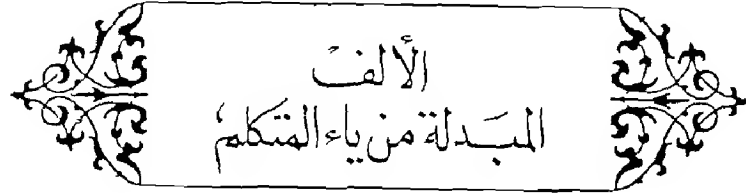 الألف
المبدلة من ياء المتكلم